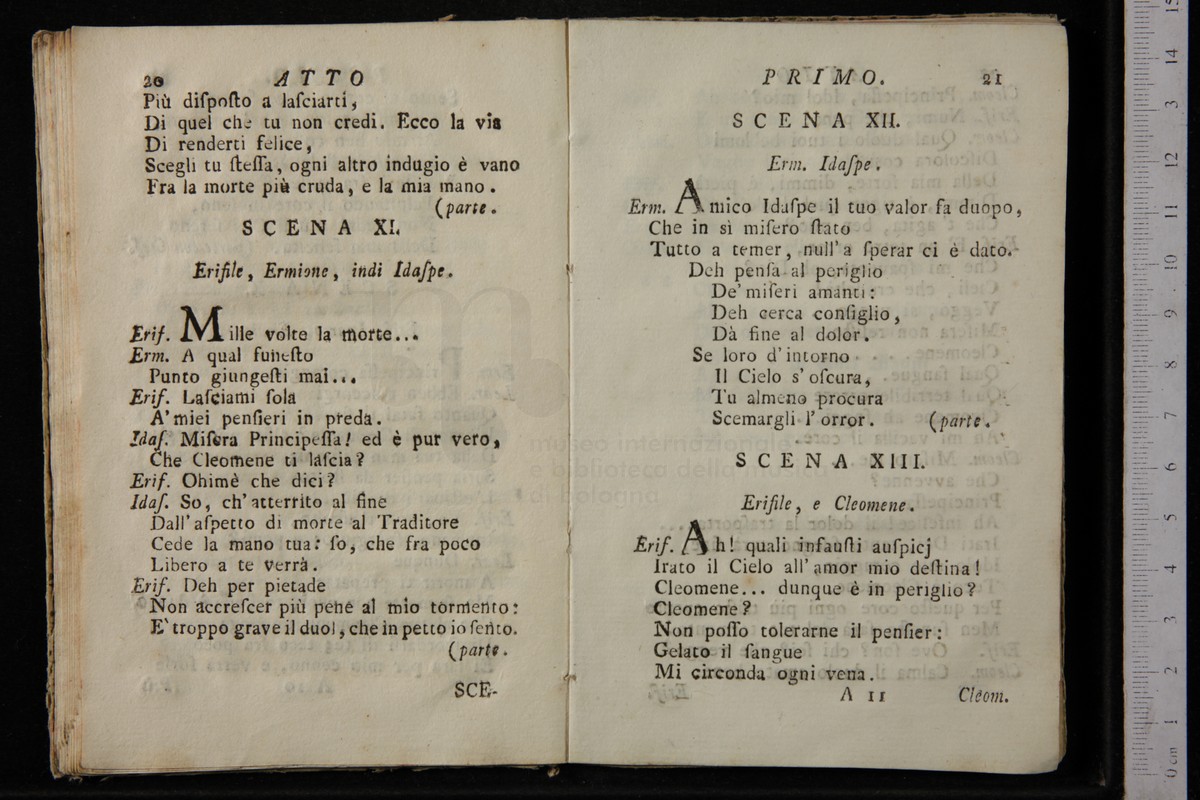 20 ATTO
Più diſpoſto a laſciarti,
Di quel che tu non credi. Ecco la via
Di renderti felice,
Scegli tu ſteſſa, ogni altro indugio è vano
Fra la morte più cruda, e la mia mano.
(parte.
SCENA XI.
Erifile, Ermione, indi Idaſpe.
Erif. Mille volte la morte...
Erm. A qual funeſto
Punto giungeſti mai...
Erif. Laſciami ſola
A' miei penſieri in preda.
Idaſ. Miſera Principeſſa! ed è pur vero,
Che Cleomene ti laſcia?
Erif. Ohimè che dici?
Idaſ. So, ch' atterrito al fine
Dall' aſpetto di morte al Traditore
Cede la mano tua: ſo, che fra poco
Libero a te verrà.
Erif. Deh per pietade
Non accreſcer più pene al mio tormento:
E' troppo grave il duol, che in petto io ſento.
(parte.
SCE-
PRIMO. 21
SCENA XII.
Erm. Idaſpe.
Erm. Amico Idaſpe il tuo valor fa duopo,
Che in sì miſero ſtato
Tutto a temer, null' a ſperar ci è dato.
Deh penſa al periglio
De' miſeri amanti:
Deh cerca conſiglio,
Dà fine al dolor.
Se loro d' intorno
Il Cielo s' oſcura,
Tu almeno procura
Scemargli l' orror. (parte.
SCENA XIII.
Erifile, e Cleomene.
Erif. Ah! quali infauſti auſpicj
Irato il Cielo all' amor mio deſtina!
Cleomene... dunque è in periglio?
Cleomene?
Non poſſo tolerarne il penſier:
Gelato il ſangue
Mi circonda ogni vena.
A 11 Cleom.
museo internazionale
e biblioteca della musica
di bologna
0 cm 1 2 3 4 5 6 7 8 9 10 11 12 13 14 15